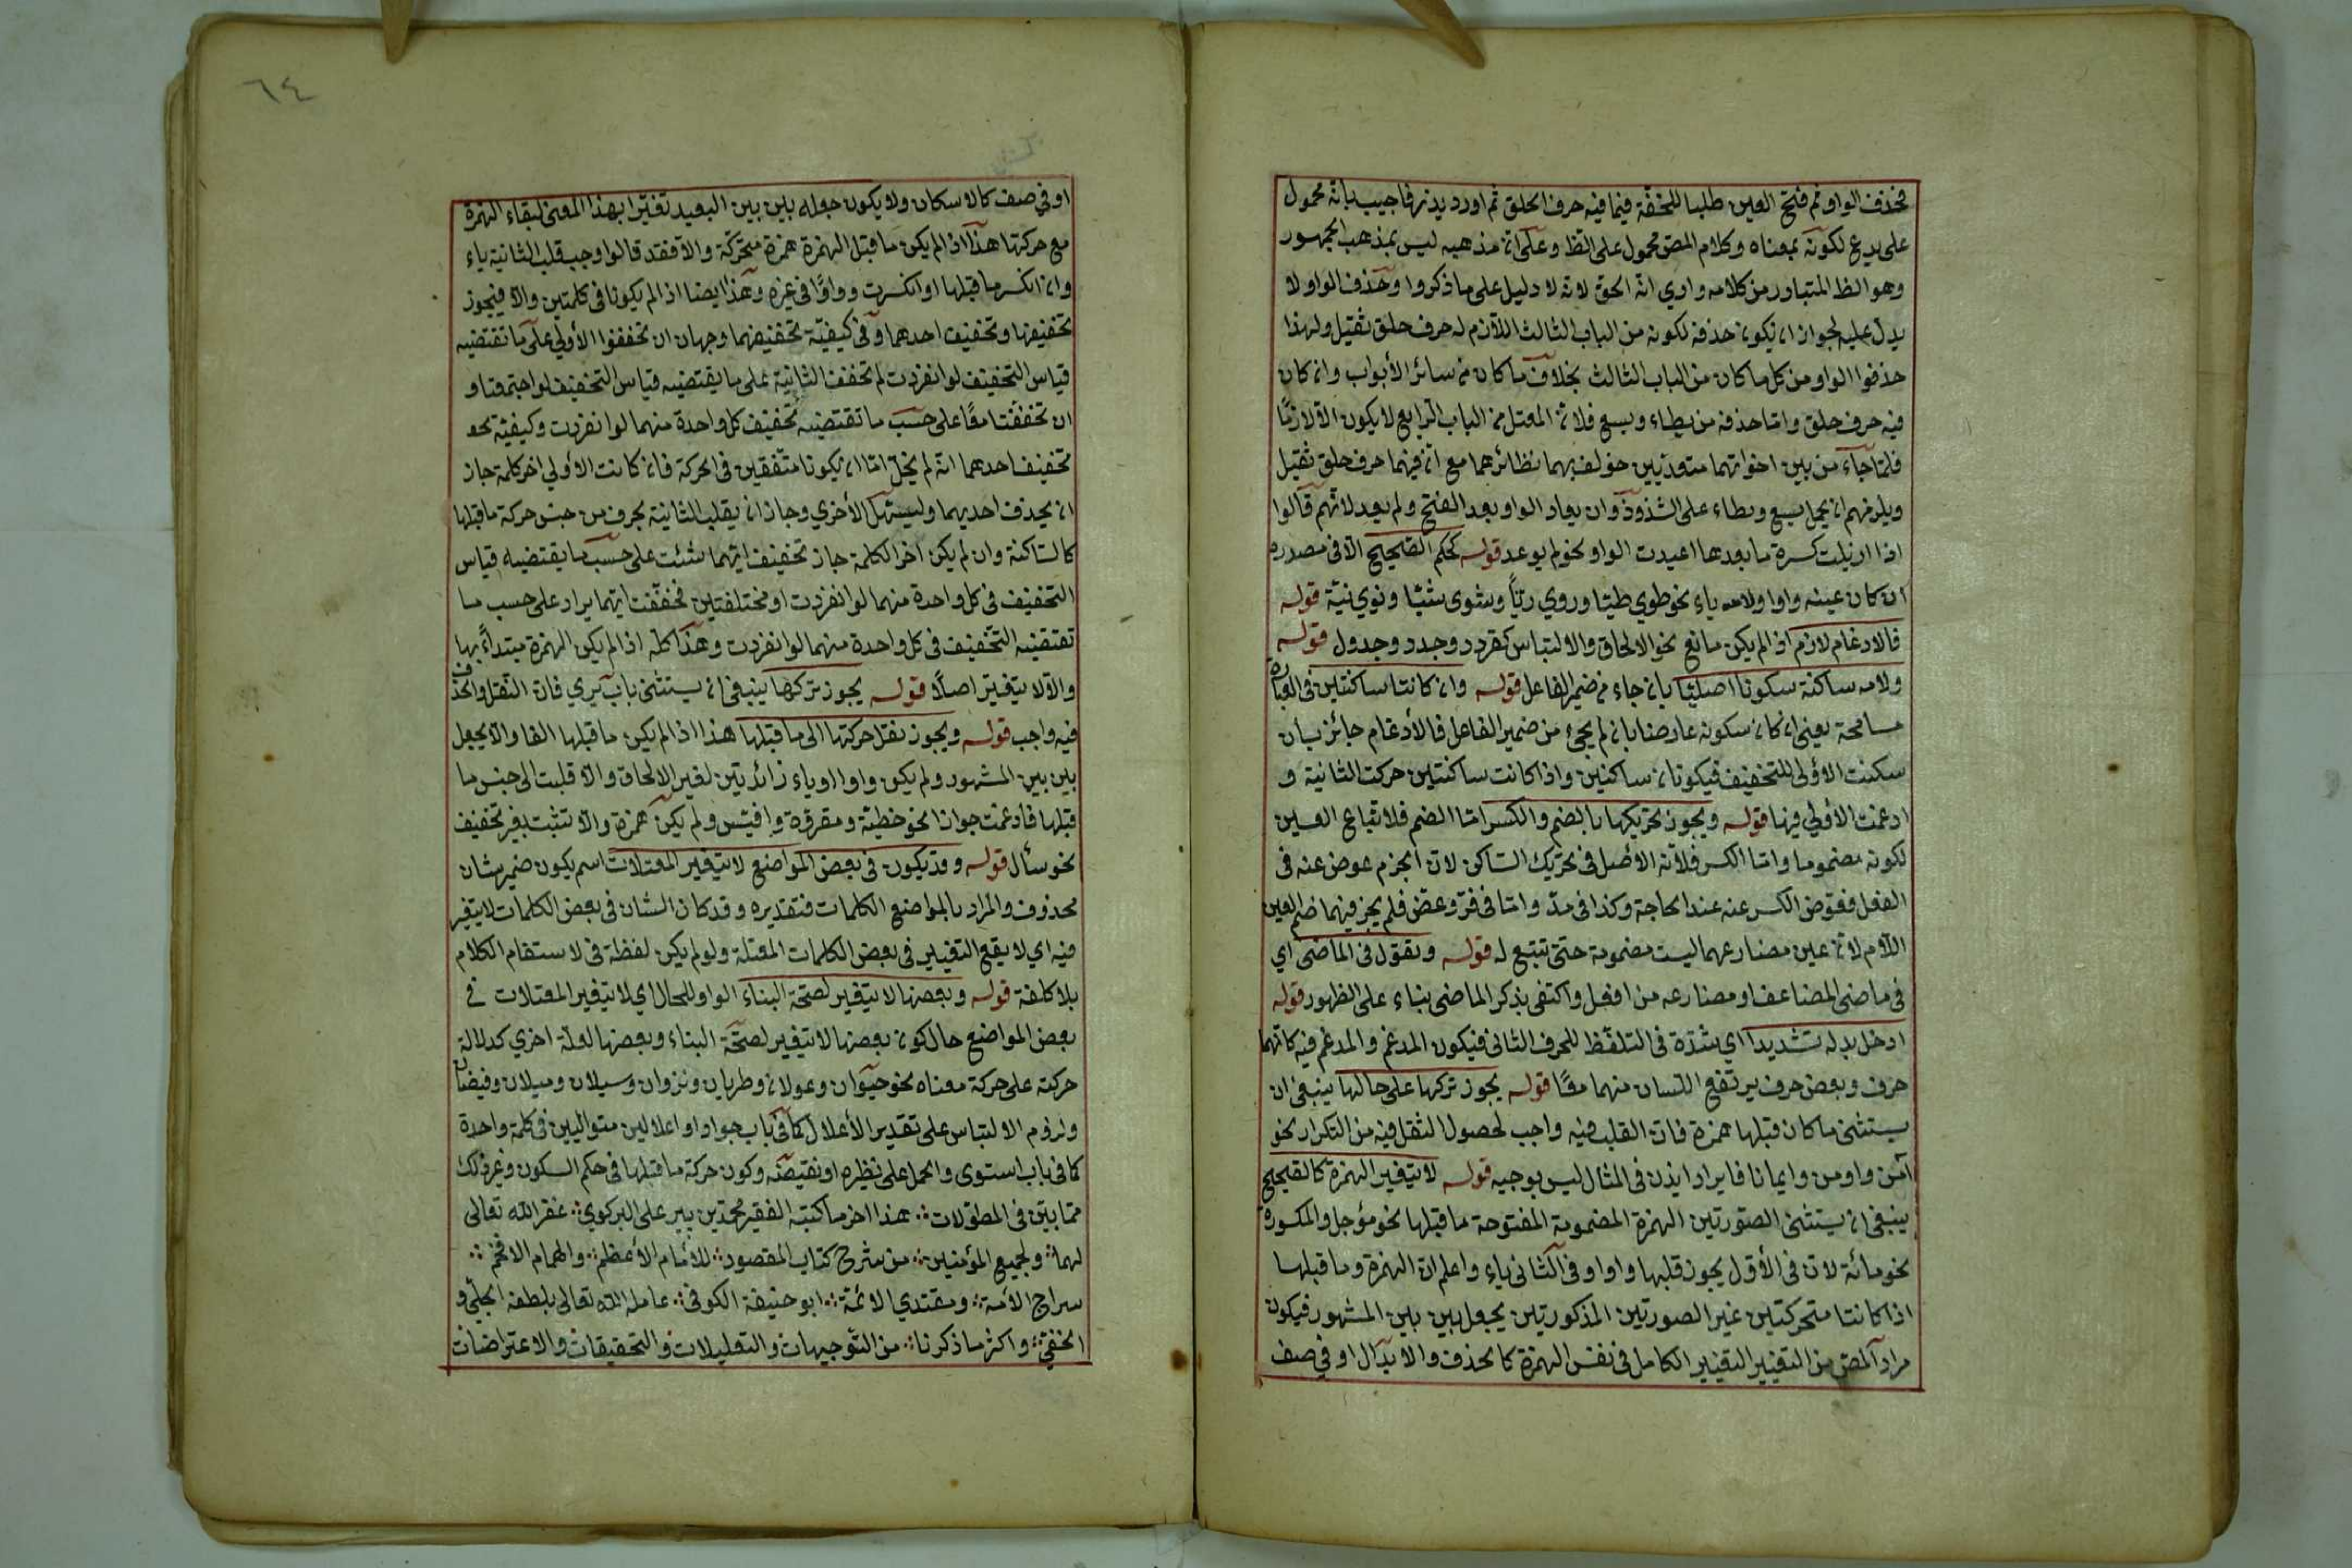 فحذف الواو ثم فتح العين طلبا للخفة فيما فيه حرف الحلق ثم اورد يذر فاجيب بانه محمول
على يدع لكونه بمعناه وكلام المص محمول على الظ وعلى ان مذهبه ليس بمذهب الجمهور
وهو الظ المتبادر من كلامه واري انه الحق لانه لا دليل على ما ذكروا وحذف الواو لا
يدل عليه لجواز ان يكون حذفه لكونه من الباب الثالث اللازم له حرف حلق ثقيل ولهذا
حذفوا الواو من كل ما كان من الباب الثالث بخلاف ما كان من سائر الأبواب وان كان
فيه حرف حلق واما حذفه من يطاء ويسع فلان المعتل من الباب الرابع لا يكون الا لازما
فلما جاء من بين اخواتهما متعديين خولف بهما نظائرهما مع ان فيهما حرف حلق ثقيل
ويلزمهم ان يحمل يسع ويطاء على الشذوذ وان يعاد الواو بعد الفتح ولم يعد لانهم قالوا
اذا ازيلت كسرة ما بعدها اعيدت الواو نحو لم يوعد قوله كحكم الصحيح الا في مصدره
ان كان عينه واوا ولامه ياء نحو طوي طيا وروي ريا وشوى شيا ونوي نية قوله
فالادغام لازم اذ الم يكن مانع نحو الالحاق والالتباس كقردد وجدد وجدول قوله
ولامه ساكنة سكونا اصليا بان جاء من ضمير الفاعل قوله وان كانتا ساكنتين في العبارة
مسامحة يعني ان كان سكونه عارضا بان لم يجئ من ضمير الفاعل فالأدغام جائز بان
سكنت الأولى للتخفيف فيكونان ساكنين واذا كانت ساكنتين حركت الثانية و
ادغمت الأولي فيها قوله ويجوز تحريكها بالضم والكسر اما الضم فلاتباع العين
لكونه مضموما واما الكسر فلأنه الأصل في تحريك الساكن لان الجزم عوض عنه في
الفعل فعوض الكسر عنه عند الحاجة وكذا في مد واما في فر وعض فلم يجز فيهما ضم العين
اللام لان عين مضارعهما ليست مضمومة حتى تتبع له قوله وتقول في الماضي اي
في ماضي المضاعف او مضارعه من افعل واكتفى بذكر الماضي بناء على الظهور قوله
ادخل بدله تشديدا اي شدة في التلفظ للحرف الثاني فيكون المدغم والمدغم فيه كانهما
حرف وبعض حرف يرتفع اللسان منهما معًا قوله يجوز تركها على حالها ينبغي ان
يستثنى ما كان قبلها همزة فان القلب فيه واجب لحصول الثقل فيه من التكرار نحو
آمن واومن وايمانا فايراد ايذن في المثال ليس بوجيه قوله لا يتغير الهمزة كالصحيح
ينبغي ان يستثنى الصورتين الهمزة المضمومة المفتوحة ما قبلها نحو مؤجل والمكسورة
نحو مائة لان في الأول يجوز قلبها واوا وفي الثاني ياء واعلم ان الهمزة وما قبلها
اذا كانتا متحركتين غير الصورتين المذكورتين يجعل بين بين المشهور فيكون
مراد المص من التغيير التغيير الكامل في نفس الهمزة كالحذف والابدال او في صف
او في صف كالاسكان ولا يكون جعله بين بين البعيد تغيّرا بهذا المعنى لبقاء الهمزة
مع حركتها هذا اذا لم يكن ما قبل الهمزة همزة متحركة والا فقد قالوا وجب قلب الثانية ياء
وان انكسر ما قبلها او انكسرت وواوًا في غيره وهذا ايضا اذ الم يكونا في كلمتين والا فيجوز
تخفيفها وتخفيف احدهما وفي كيفية تخفيفهما وجهان ان تخففوا الأولي على ما تقتضيه
قياس التخفيف لو انفردت ثم تخفف الثانية على ما يقتضيه قياس التخفيف لو اجتمعتا و
ان تخففتا معًا على حسب ما تقتضيه تخفيف كل واحدة منهما لو انفردت وكيفية نحو
تخفيف احدهما انه لم يخل اما ان يكونا متفقين في الحركة فان كانت الأولي اخر كلمة جاز
ان يحذف احديهما وليسهل الأخري وجاز ان يقلب الثانية بحرف من جنس حركة ما قبلها
كالساكنة وان لم يكن اخر الكلمة جاز تخفيف ايهما شئت على حسب ما يقتضيه قياس
التخفيف في كل واحدة منهما لو انفردت او مختلفتين فخففت ايتهما يراد على حسب ما
تقتضيه التخفيف في كل واحدة منهما لو انفردت وهذا كله اذ الم يكن الهمزة مبتداءً بها
والا لا يتغير اصلًا قوله يجوز تركها ينبغي ان يستثنى باب يري فان النقل والحذف
فيه واجب قوله ويجوز نقل حركتها الى ما قبلها هذا اذ الم يكن ما قبلها الفا والا يجعل
بين بين المشهور ولم يكن واوا او ياء زائدتين لغير الالحاق والا قلبت الى جنس ما
قبلها فادغمت جوازا نحو خطية ومقروة وافيس ولم يكن همزة والا تثبت بغير تخفيف
نحو سأال قوله وقد يكون في بعض المواضع لا يتغير المعتلات اسم يكون ضمير شان
محذوف والمراد بالمواضع الكلمات فتقديره وقد كان الشان في بعض الكلمات لا يتغير
فيه اي لا يقع التغيير في بعض الكلمات المعتلة ولو لم يكن لفظة في لاستقام الكلام
بلا كلفة قوله وبعضها لا يتغير لصحة البناء الواو للحال اي لا يتغير المعتلات في
بعض المواضع حال كون بعضها لا يتغير لصحة البناء وبعضها لعلة اخري كدلالة
حركته على حركة معناه نحو حيوان وعولان وطريان ونزوان وسيلان وميلان وفيضان
ولزوم الالتباس على تقدير الأعلال كما في باب جواد او اعلالين متواليين في كلمة واحدة
كما في باب استوى والحمل على نظيره او نقيضه وكون حركة ما قبلها في حكم السكون وغير ذلك
مما بين في المطولات ∴ هذا اخر ما كتبه الفقير محمد بن بير على البركوي ∴ غفر الله تعالى
لهما ∴ ولجميع المؤمنين ∴ من شرح كتاب المقصود ∴ للأمام الأعظم ∴ والهمام الافخم ∴
سراج الأمة ∴ ومقتدي الائمة ∴ ابو حنيفة الكوفي ∴ عامله الله تعالى بلطفه الجلي و
الخفي ∴ واكثر ما ذكرنا ∴ من التوجيهات والتعليلات والتحقيقات والاعتراضات
٦٤